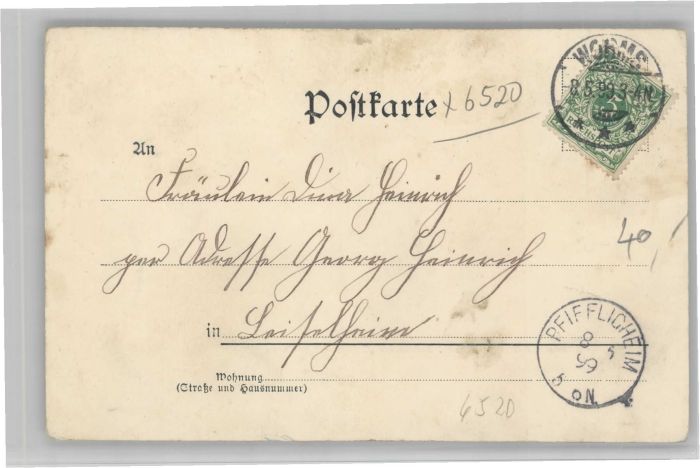 WORMS
8.5.99.3-4N.
Postkarte x 6520
An
Fräulein Dina Heinrich
per Adresse Georg Heinrich
40,-
in Leiselheim
Wohnung
(Straße und Hausnummer)
PFIFFLIGHEIM
8 5
99
5-6N
6520